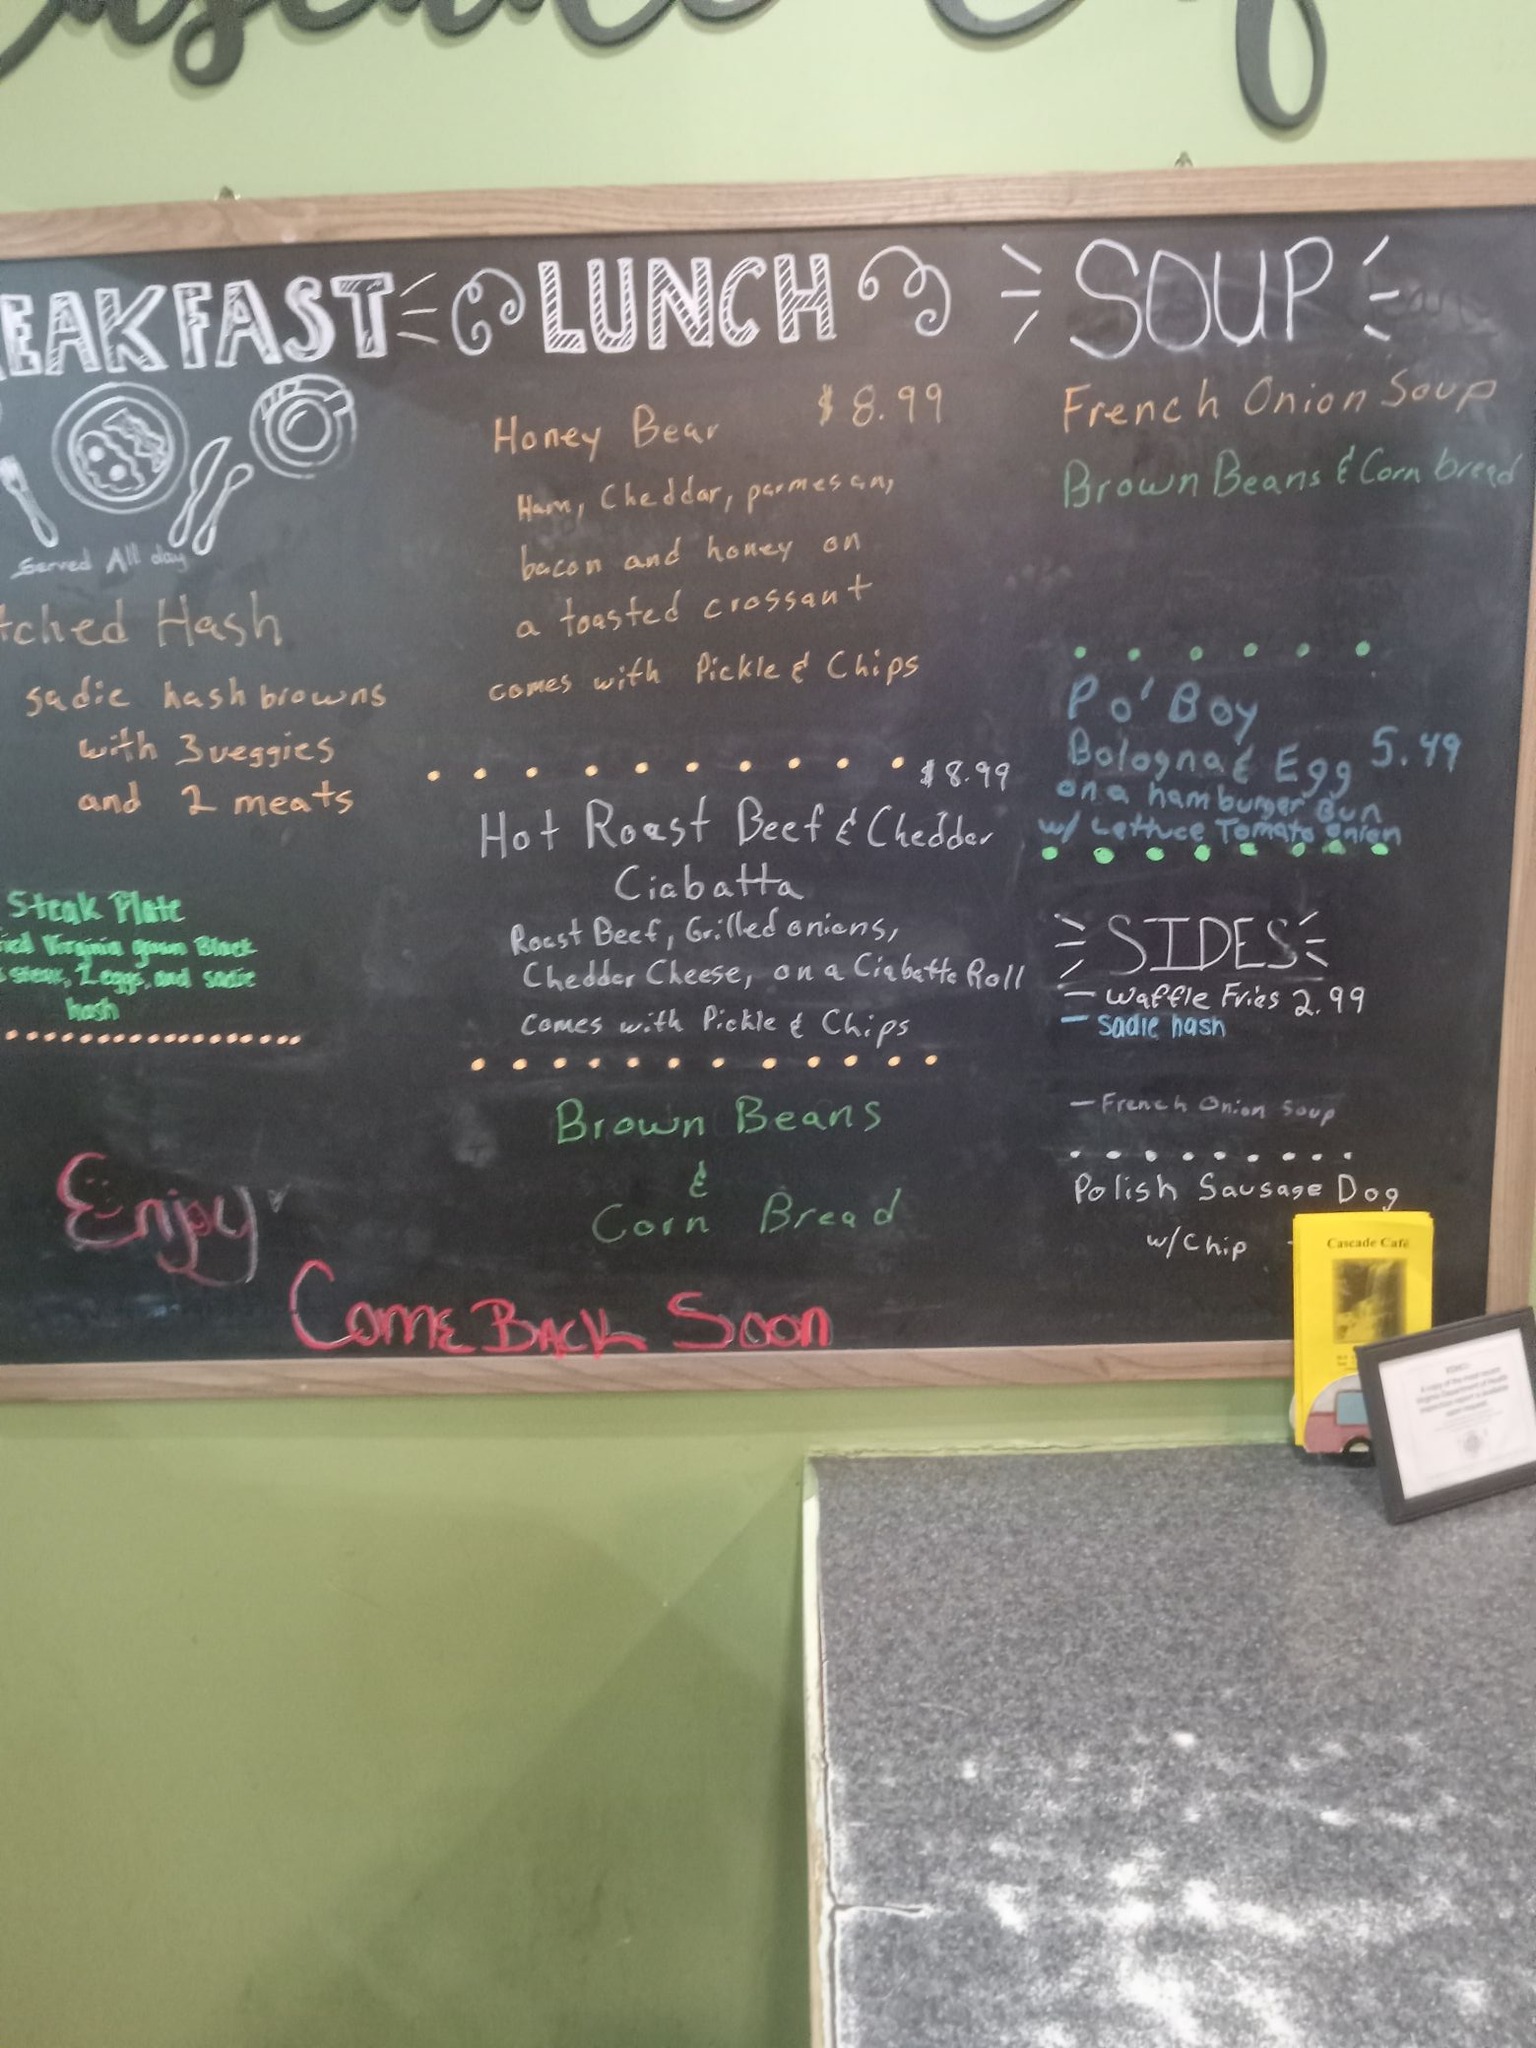 Cascade
EAKFAST
Served All day
tched Hash
sadie hash browns
with 3 veggies
and 2 meats
Steak Plate
ied Virginia grown Black
steak, 2 eggs, and sadie
hash
Enjoy
LUNCH
Honey Bear $8.99
Ham, Cheddar, parmesan,
bacon and honey on
a toasted crossant
comes with Pickle & Chips
$8.99
Hot Roast Beef & Chedder
Ciabatta
Roast Beef, Grilled onions,
Cheddar Cheese, on a Ciabatta Roll
comes with Pickle & Chips
Brown Beans
&
Corn Bread
Come Back Soon
SOUP
French Onion Soup
Brown Beans & Corn bread
Po' Boy
Bologna & Egg 5.49
on a hamburger Bun
w/ Lettuce Tomato onion
SIDES
- Waffle Fries 2.99
- Sadie hash
- French Onion Soup
Polish Sausage Dog
w/Chip
Cascade Café
A copy of the most recent
Virginia Department of Health
inspection report is available
upon request.